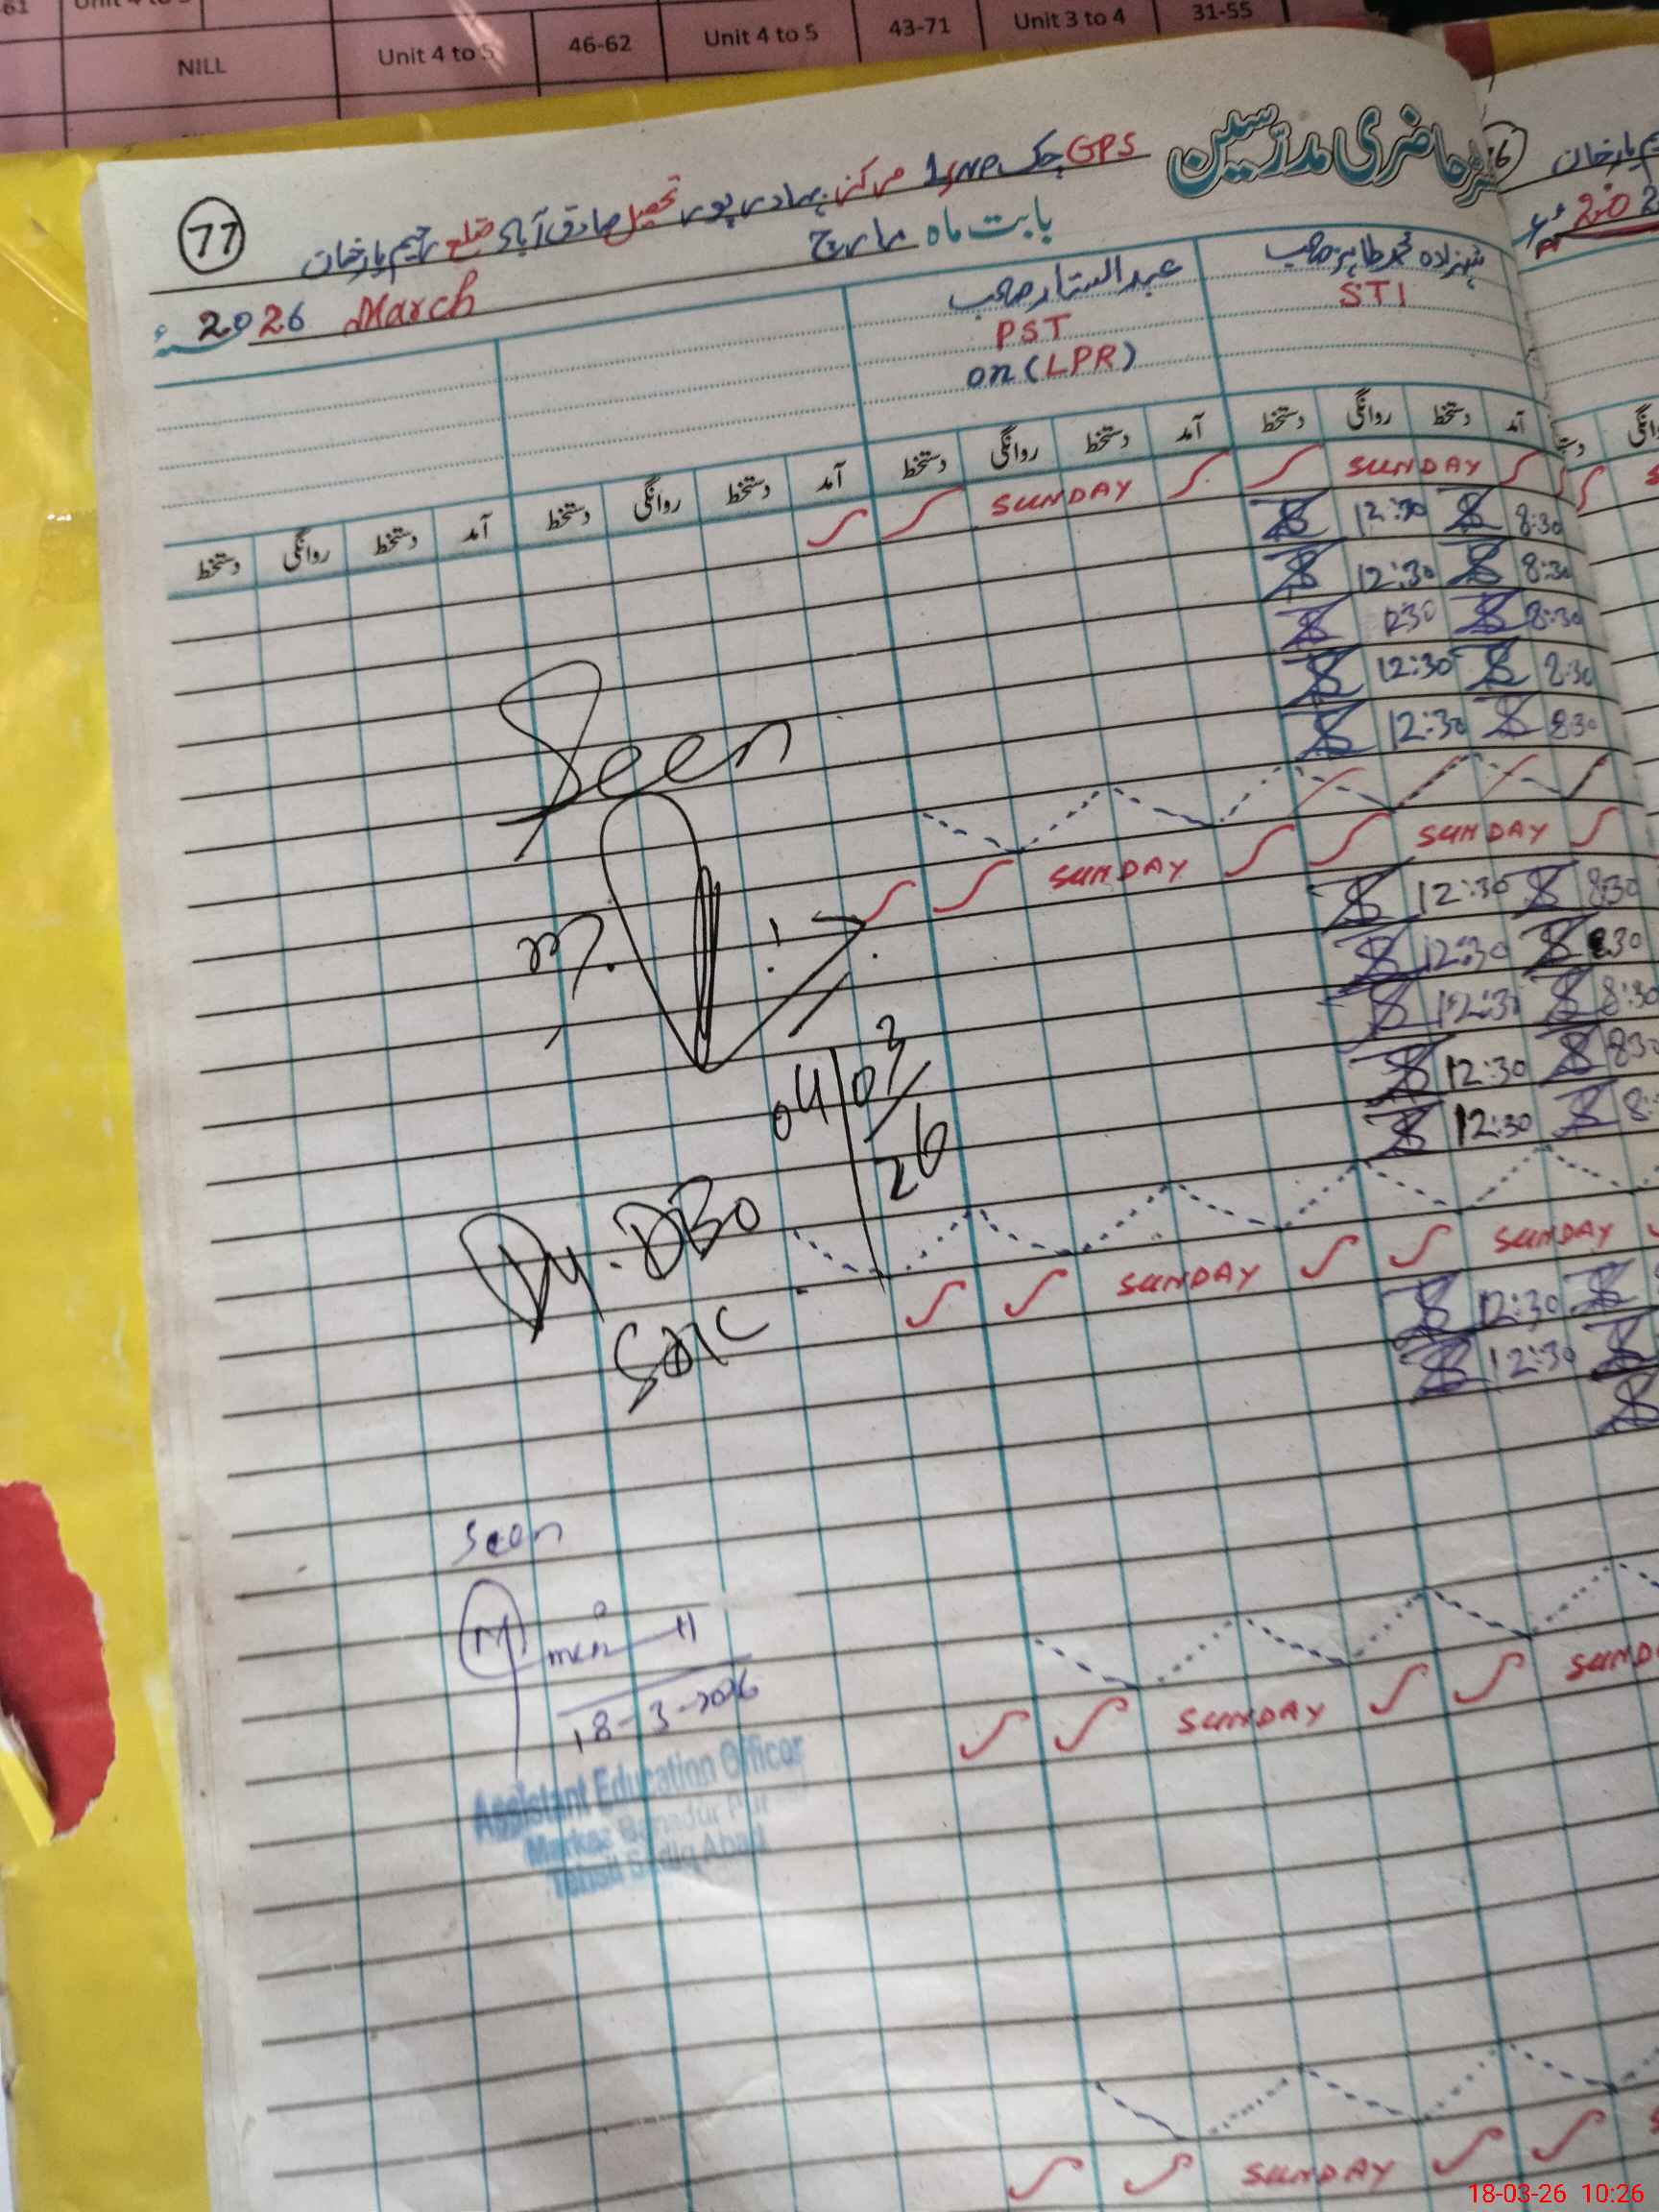 61
NILL
Unit 4 to 5
46-62
Unit 4 to 5
43-71
Unit 3 to 4
31-55
77
حاضری مدرسین
GPS چک 1 SNP مرکز بہادر پور تحصیل صادق آباد ضلع رحیم یار خان
بابت ماہ مارچ
2026 March
شہزادہ محمد طاہر صاحب
STI
عبدالستار صاحب
PST
on (LPR)
آمد دستخط روانگی دستخط آمد دستخط روانگی دستخط آمد دستخط روانگی دستخط آمد دستخط روانگی دستخط
SUNDAY SUNDAY
8:30 12:30
8:30 12:30
8:30
8:30 12:30
830 12:30
SUNDAY SUNDAY
830 12:30
830 12:30
8:30 12:30
830 12:30
12:30
SUNDAY SUNDAY
12:30
12:30
Seen
04/03/26
Dy. DEO
SDK
SUNDAY
Seen
18-3-2026
Assistant Education Officer
Markaz Bahadur Pur
Tehsil Sadiq Abad
SUNDAY
18-03-26 10:26